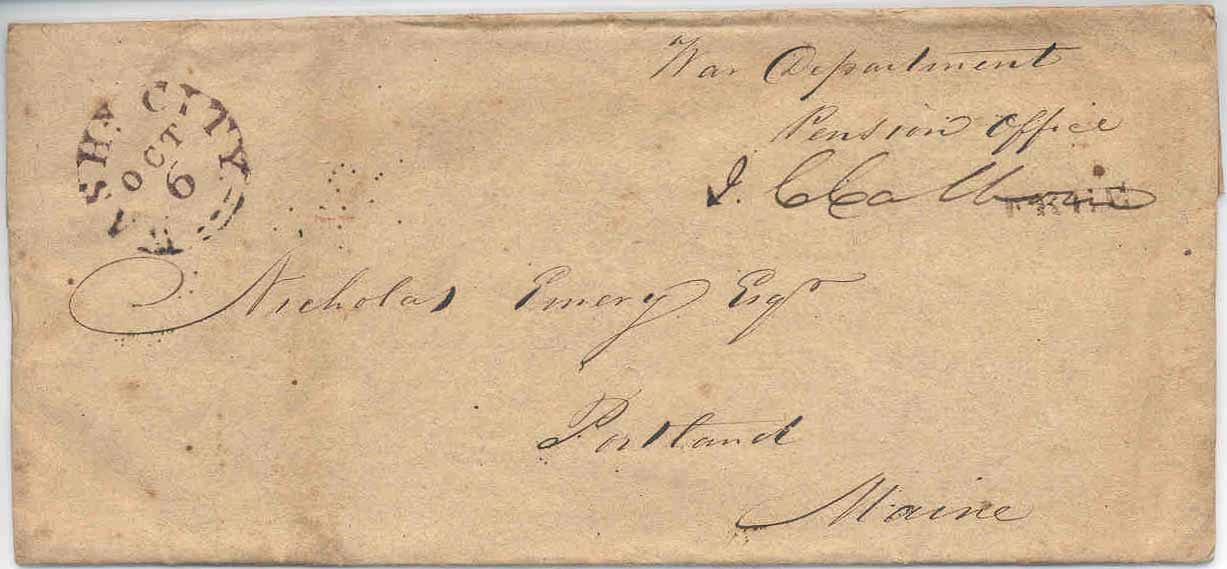 SHN CITY
OCT
6
War Department
Pension Office
J. C Calhoun
Nicholas Emery Esqr
Portland
Maine